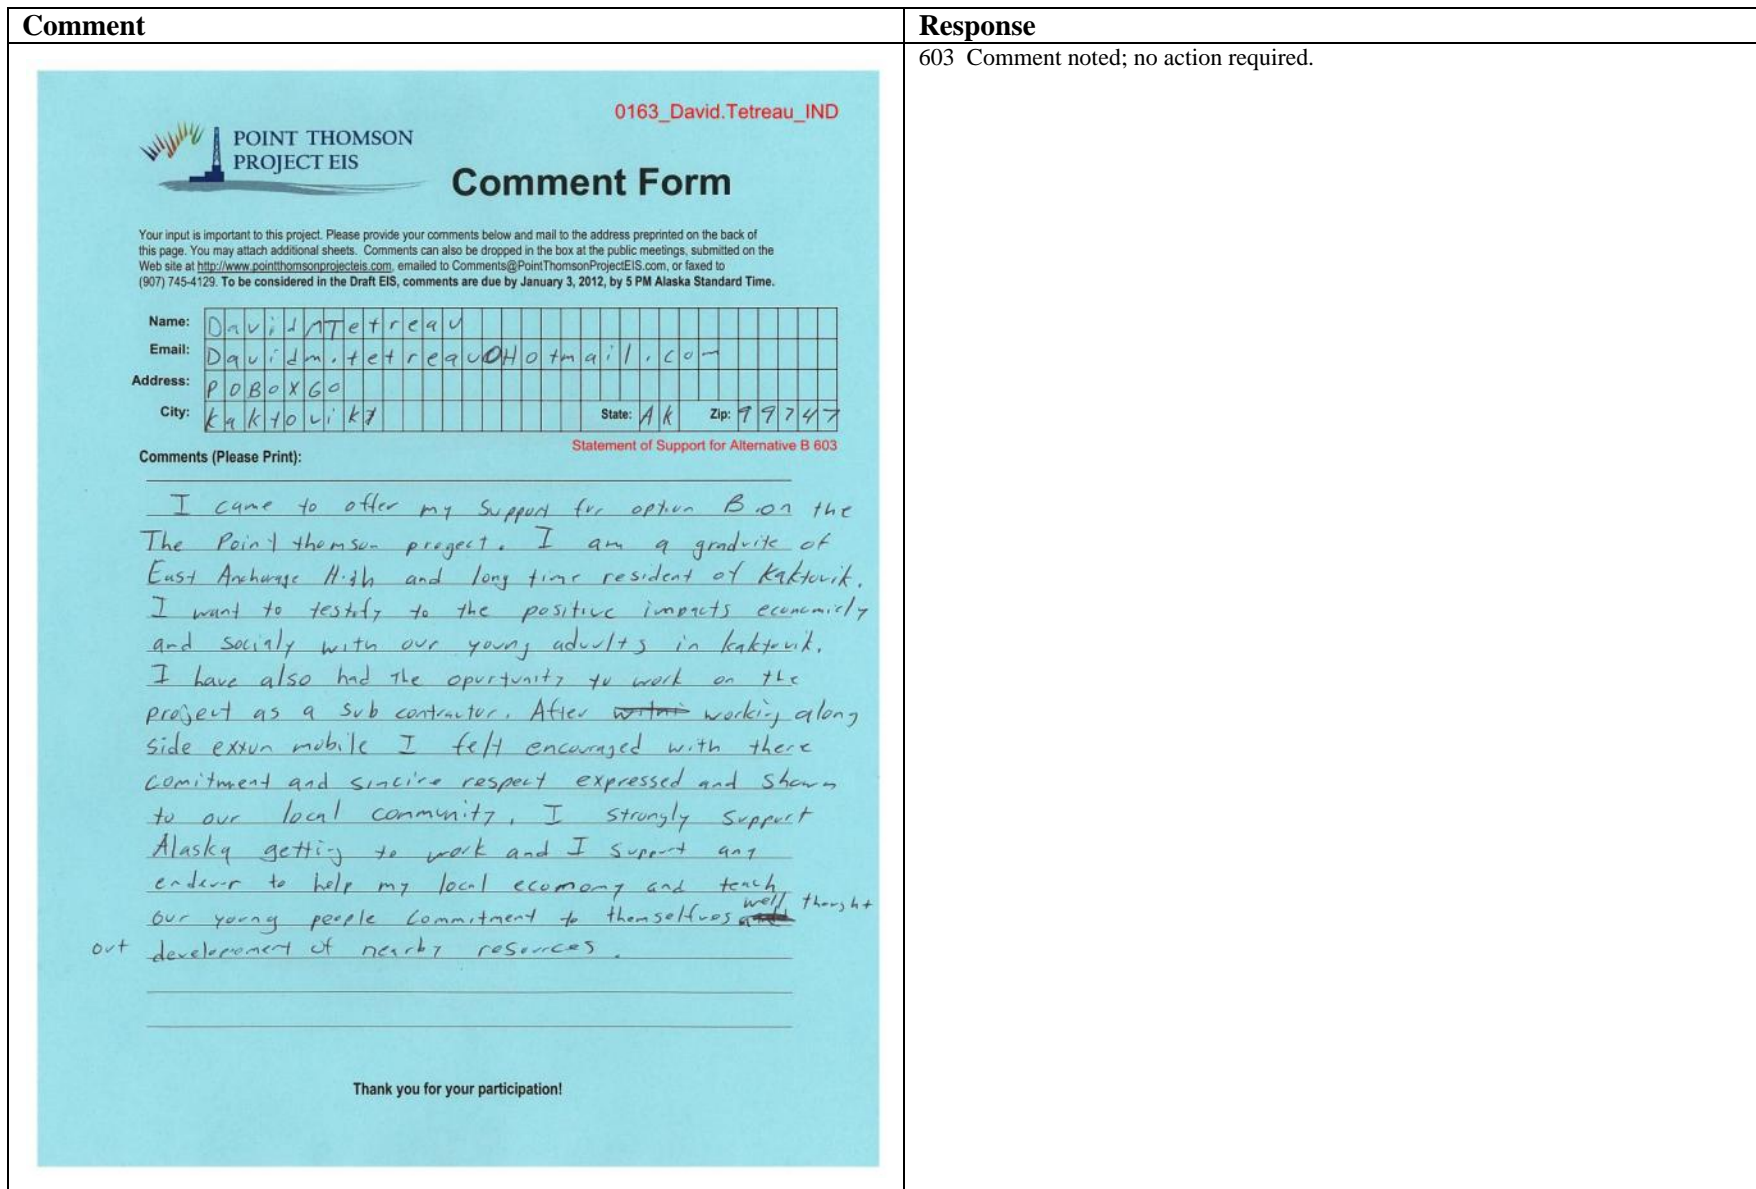 Comment
Response
603 Comment noted; no action required.
0163_David.Tetreau_IND
POINT THOMSON
PROJECT EIS
Comment Form
Your input is important to this project. Please provide your comments below and mail to the address preprinted on the back of
this page. You may attach additional sheets. Comments can also be dropped in the box at the public meetings, submitted on the
Web site at http://www.pointthomsonprojecteis.com, emailed to Comments@PointThomsonProjectEIS.com, or faxed to
(907) 745-4129. To be considered in the Draft EIS, comments are due by January 3, 2012, by 5 PM Alaska Standard Time.
Name: David M Tetreau
Email: Davidm.tetreau@Hotmail.com
Address: P O Box 60
City: Kaktovik State: AK Zip: 99747
Statement of Support for Alternative B 603
Comments (Please Print):
I came to offer my support for option B on the
The Point thomson progect. I am a graduite of
East Anchorage High and long time resident of Kaktovik.
I want to testify to the positive impacts economicly
and socialy with our young adults in kaktovik.
I have also had the opurtunity to work on the
project as a sub contractor. After working along
side exxon mobile I felt encouraged with there
comitment and sincire respect expressed and shown
to our local community. I strongly support
Alaska getting to work and I support any
endevor to help my local ecomomy and teach
our young people commitment to themselfves well thought
out development of nearby resources.
Thank you for your participation!